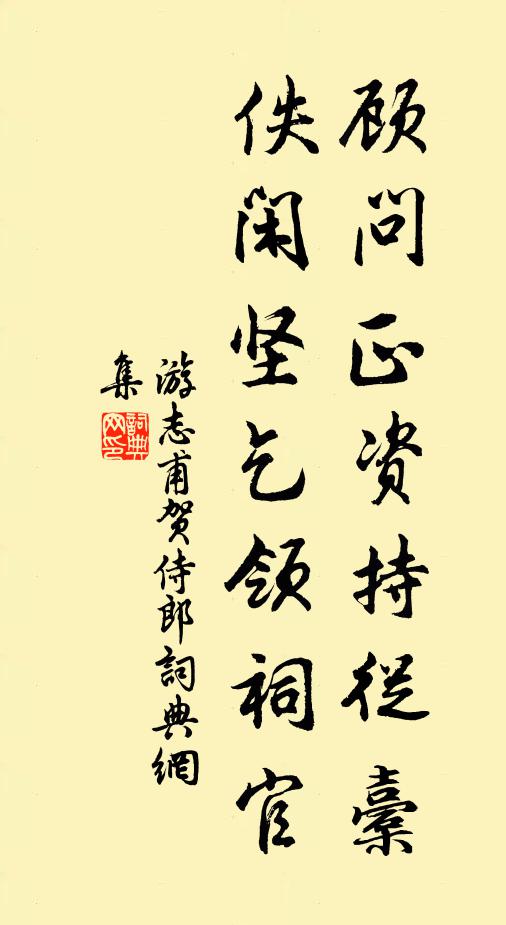 顾问正资持从橐
佚闲坚乞领祠官
游志甫贺侍郎詞典網
集
詞典网印